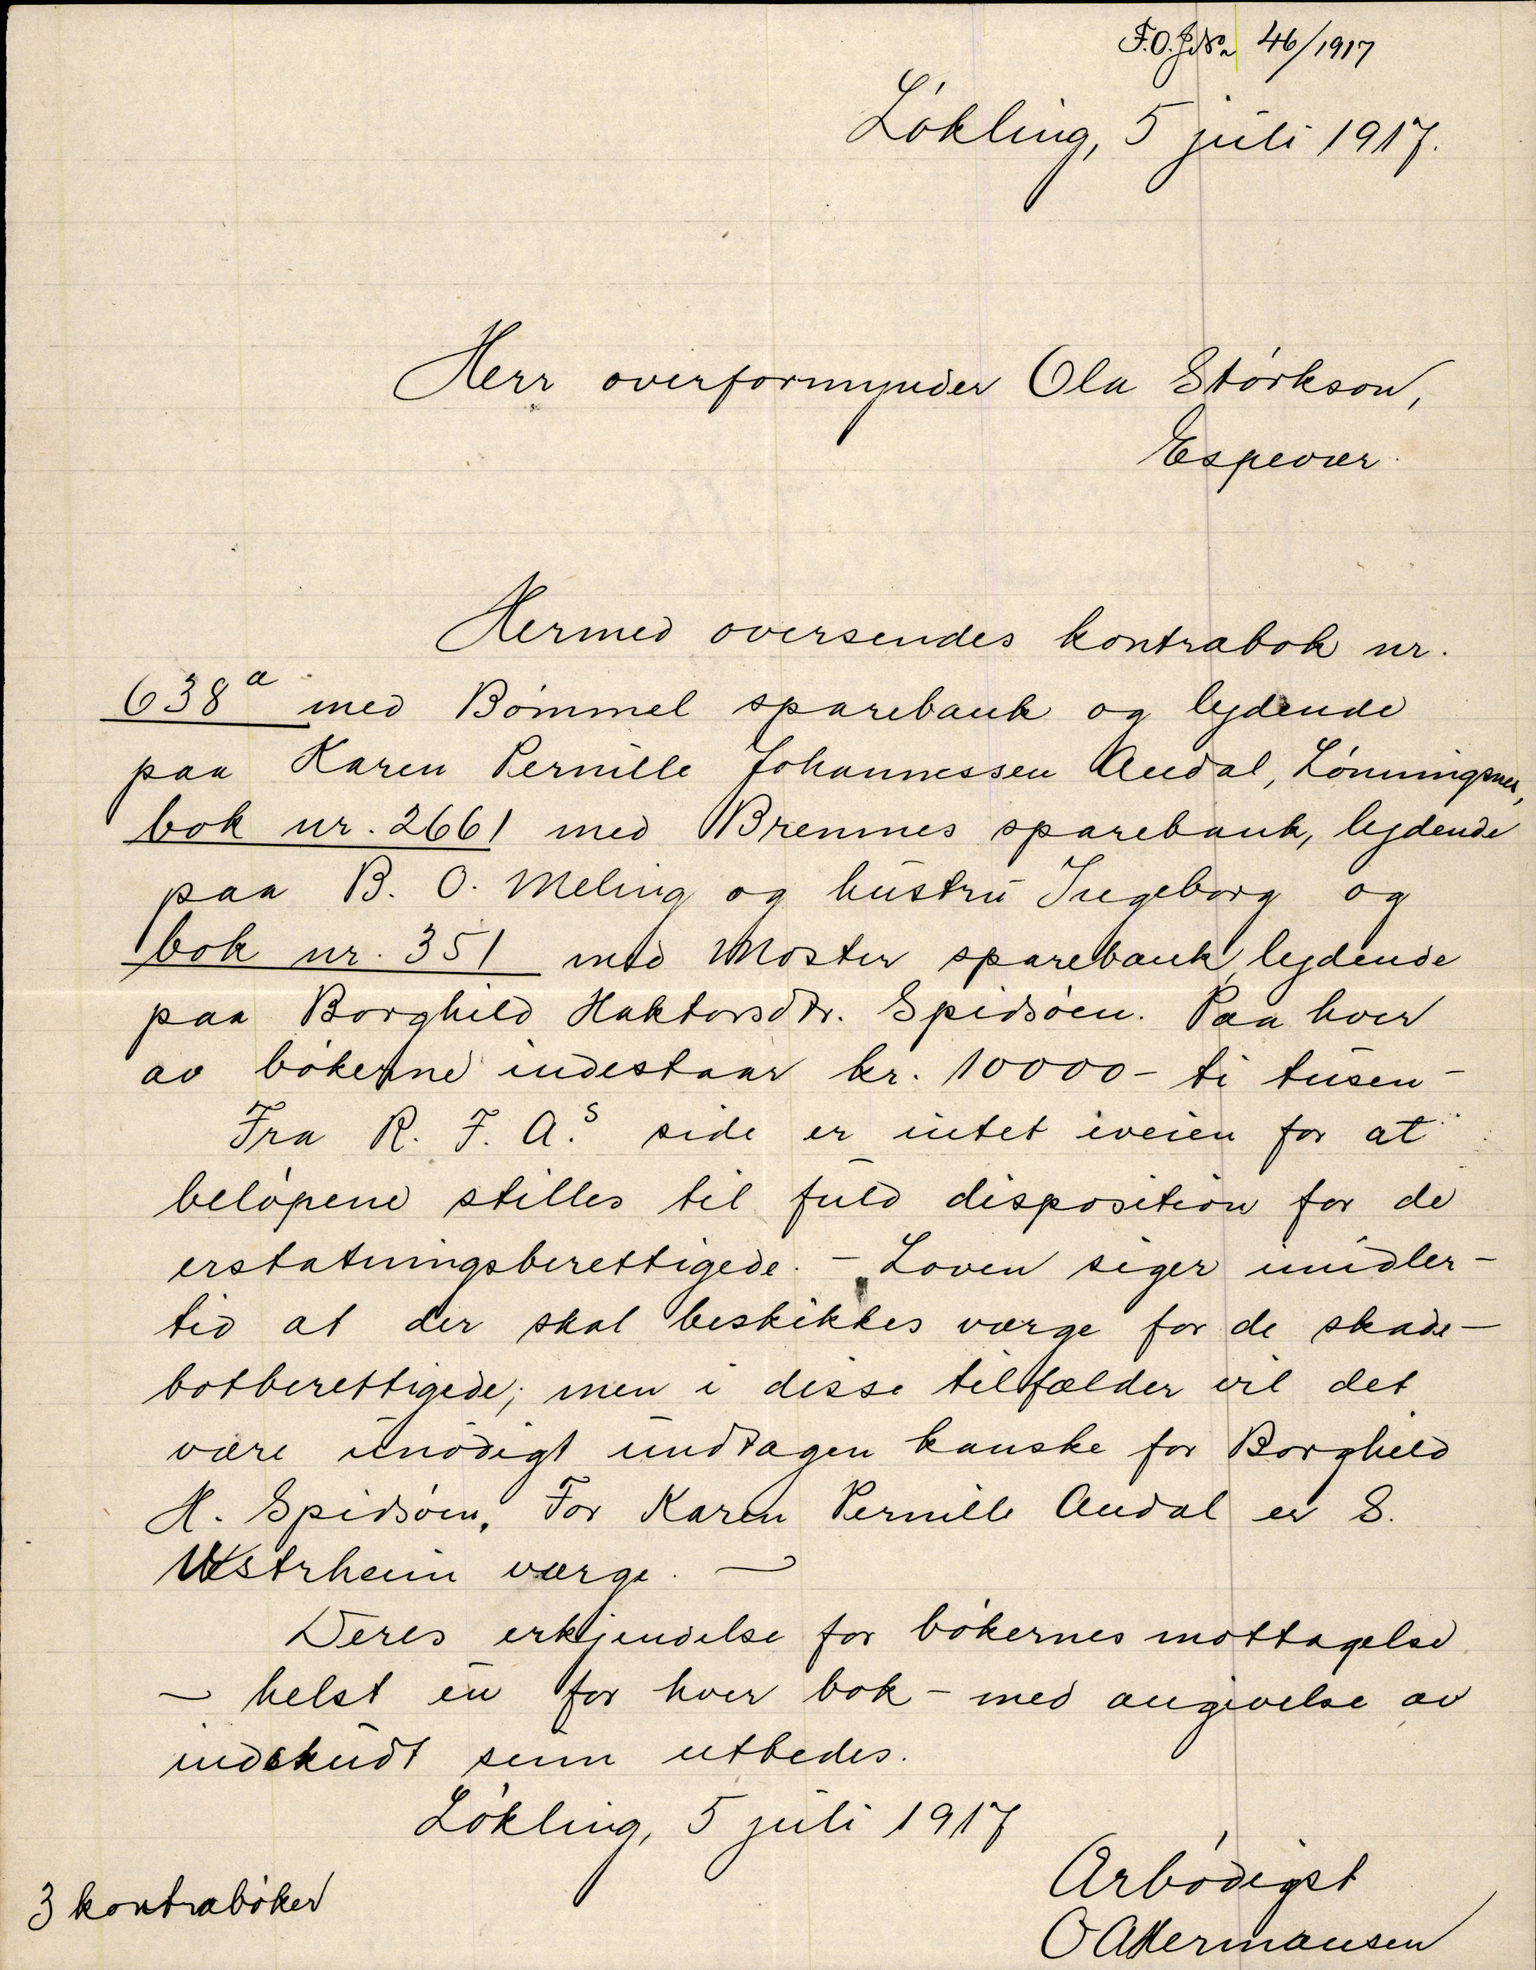 F.O.J.No. 46/1917
Løkling, 5 juli 1917.
Herr overformynder Ola Størkson,
Espevær.
Hermed oversendes kontrabok nr.
638a med Bømmel sparebank og lydende
paa Karen Pernille Johannessen Andal, Lønningsnes,
bok nr. 2661 med Bremnes sparebank, lydende
paa B. O. Meling og hustru Ingeborg og
bok nr. 351 med Moster sparebank, lydende
paa Borghild Haktorsdtr. Spidsøen. Paa hver
av bøkerne indestaar kr. 10000 - ti tusen -
Fra R. F. A.s side er intet iveien for at
beløpene stilles til fuld disposition for de
erstatningsberettigede. - Loven siger imidler-
tid at der skal beskikkes værge for de skade-
botberettigede; men i disse tilfælder vil det
være unødigt undtagen kanske for Borghild
H. Spidsøen. For Karen Pernille Andal er S.
Westrheim værge. —
Deres erkjendelse for bøkernes mottagelse
- helst én for hver bok - med angivelse av
indskudt sum utbedes.
Løkling, 5 juli 1917
Ærbødigst
O A Hermansen
3 kontrabøker